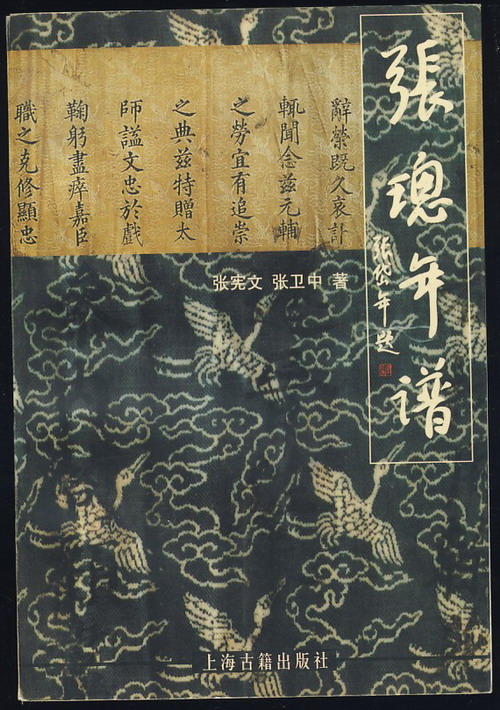 張璁年谱
張岱年题
辭榮既久哀訃
輒聞念兹元輔
之勞宜有追崇
之典兹特贈太
師謚文忠於戲
鞠躬盡瘁嘉臣
職之克修顯忠
张宪文 张卫中 著
上海古籍出版社